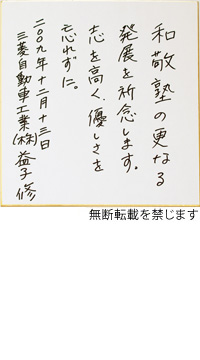 和敬塾の更なる
発展を祈念します。
志を高く、優しさを
忘れずに。
二〇〇九年十二月十三日
三菱自動車工業(株)益子修
無断転載を禁じます